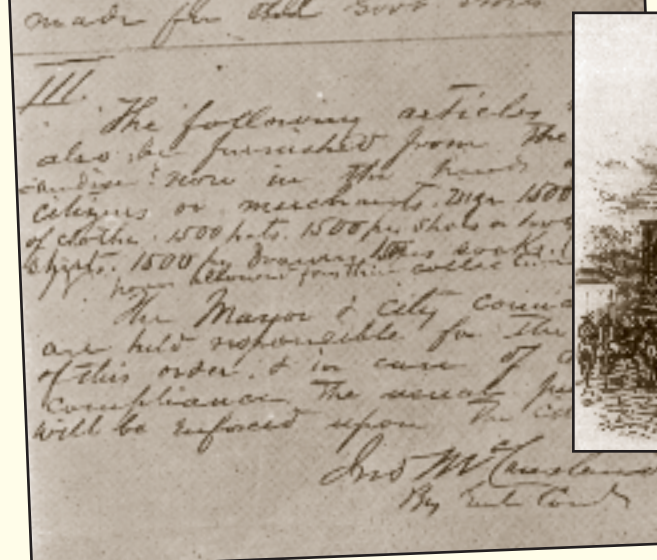 made for
III.
The following articles
also be furnished from the
now in the hands
citizens or merchants. Viz. 1500
of clothes. 1500 hats. 1500 prs Shoes or boot
Shirts. 1500 pr Drawers, socks.
hours allowed for their collection
The Mayor & city counc
are held responsible for the
of this order. & in case of
compliance the usual pe
will be enforced upon the cit
Jno McCausland
By